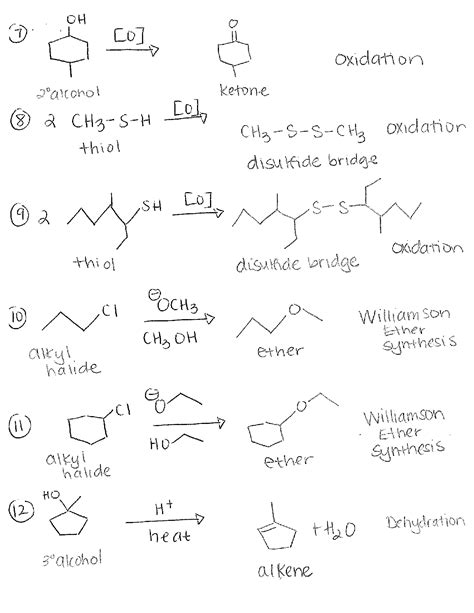 ⑦ OH [O] O Oxidation
2° alcohol ketone
⑧ 2 CH3-S-H [O] CH3-S-S-CH3 Oxidation
thiol disulfide bridge
⑨ 2 SH [O] S-S Oxidation
thiol disulfide bridge
⑩ Cl ⊖OCH3 O Williamson
CH3OH Ether
alkyl ether Synthesis
halide
⑪ Cl ⊖O O Williamson
HO Ether
alkyl ether Synthesis
halide
⑫ HO H+ + H2O Dehydration
heat
3° alcohol alkene